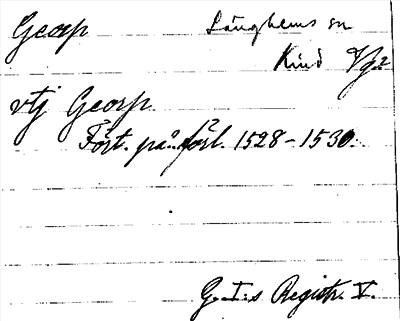 Georp Länghems sn
Kind Vg
vtj Georp
Fört. på förl. 1528-1530.
G. I:s Registr. V.